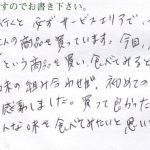 すのでお書き下さい。
行くと 必ずサービスエリアで、
の商品を買っています。今回、
という商品を買い、食べてみると
味の組み合わせが、初めての
感動しました。買って良かった
んな味を食べてみたいと思い